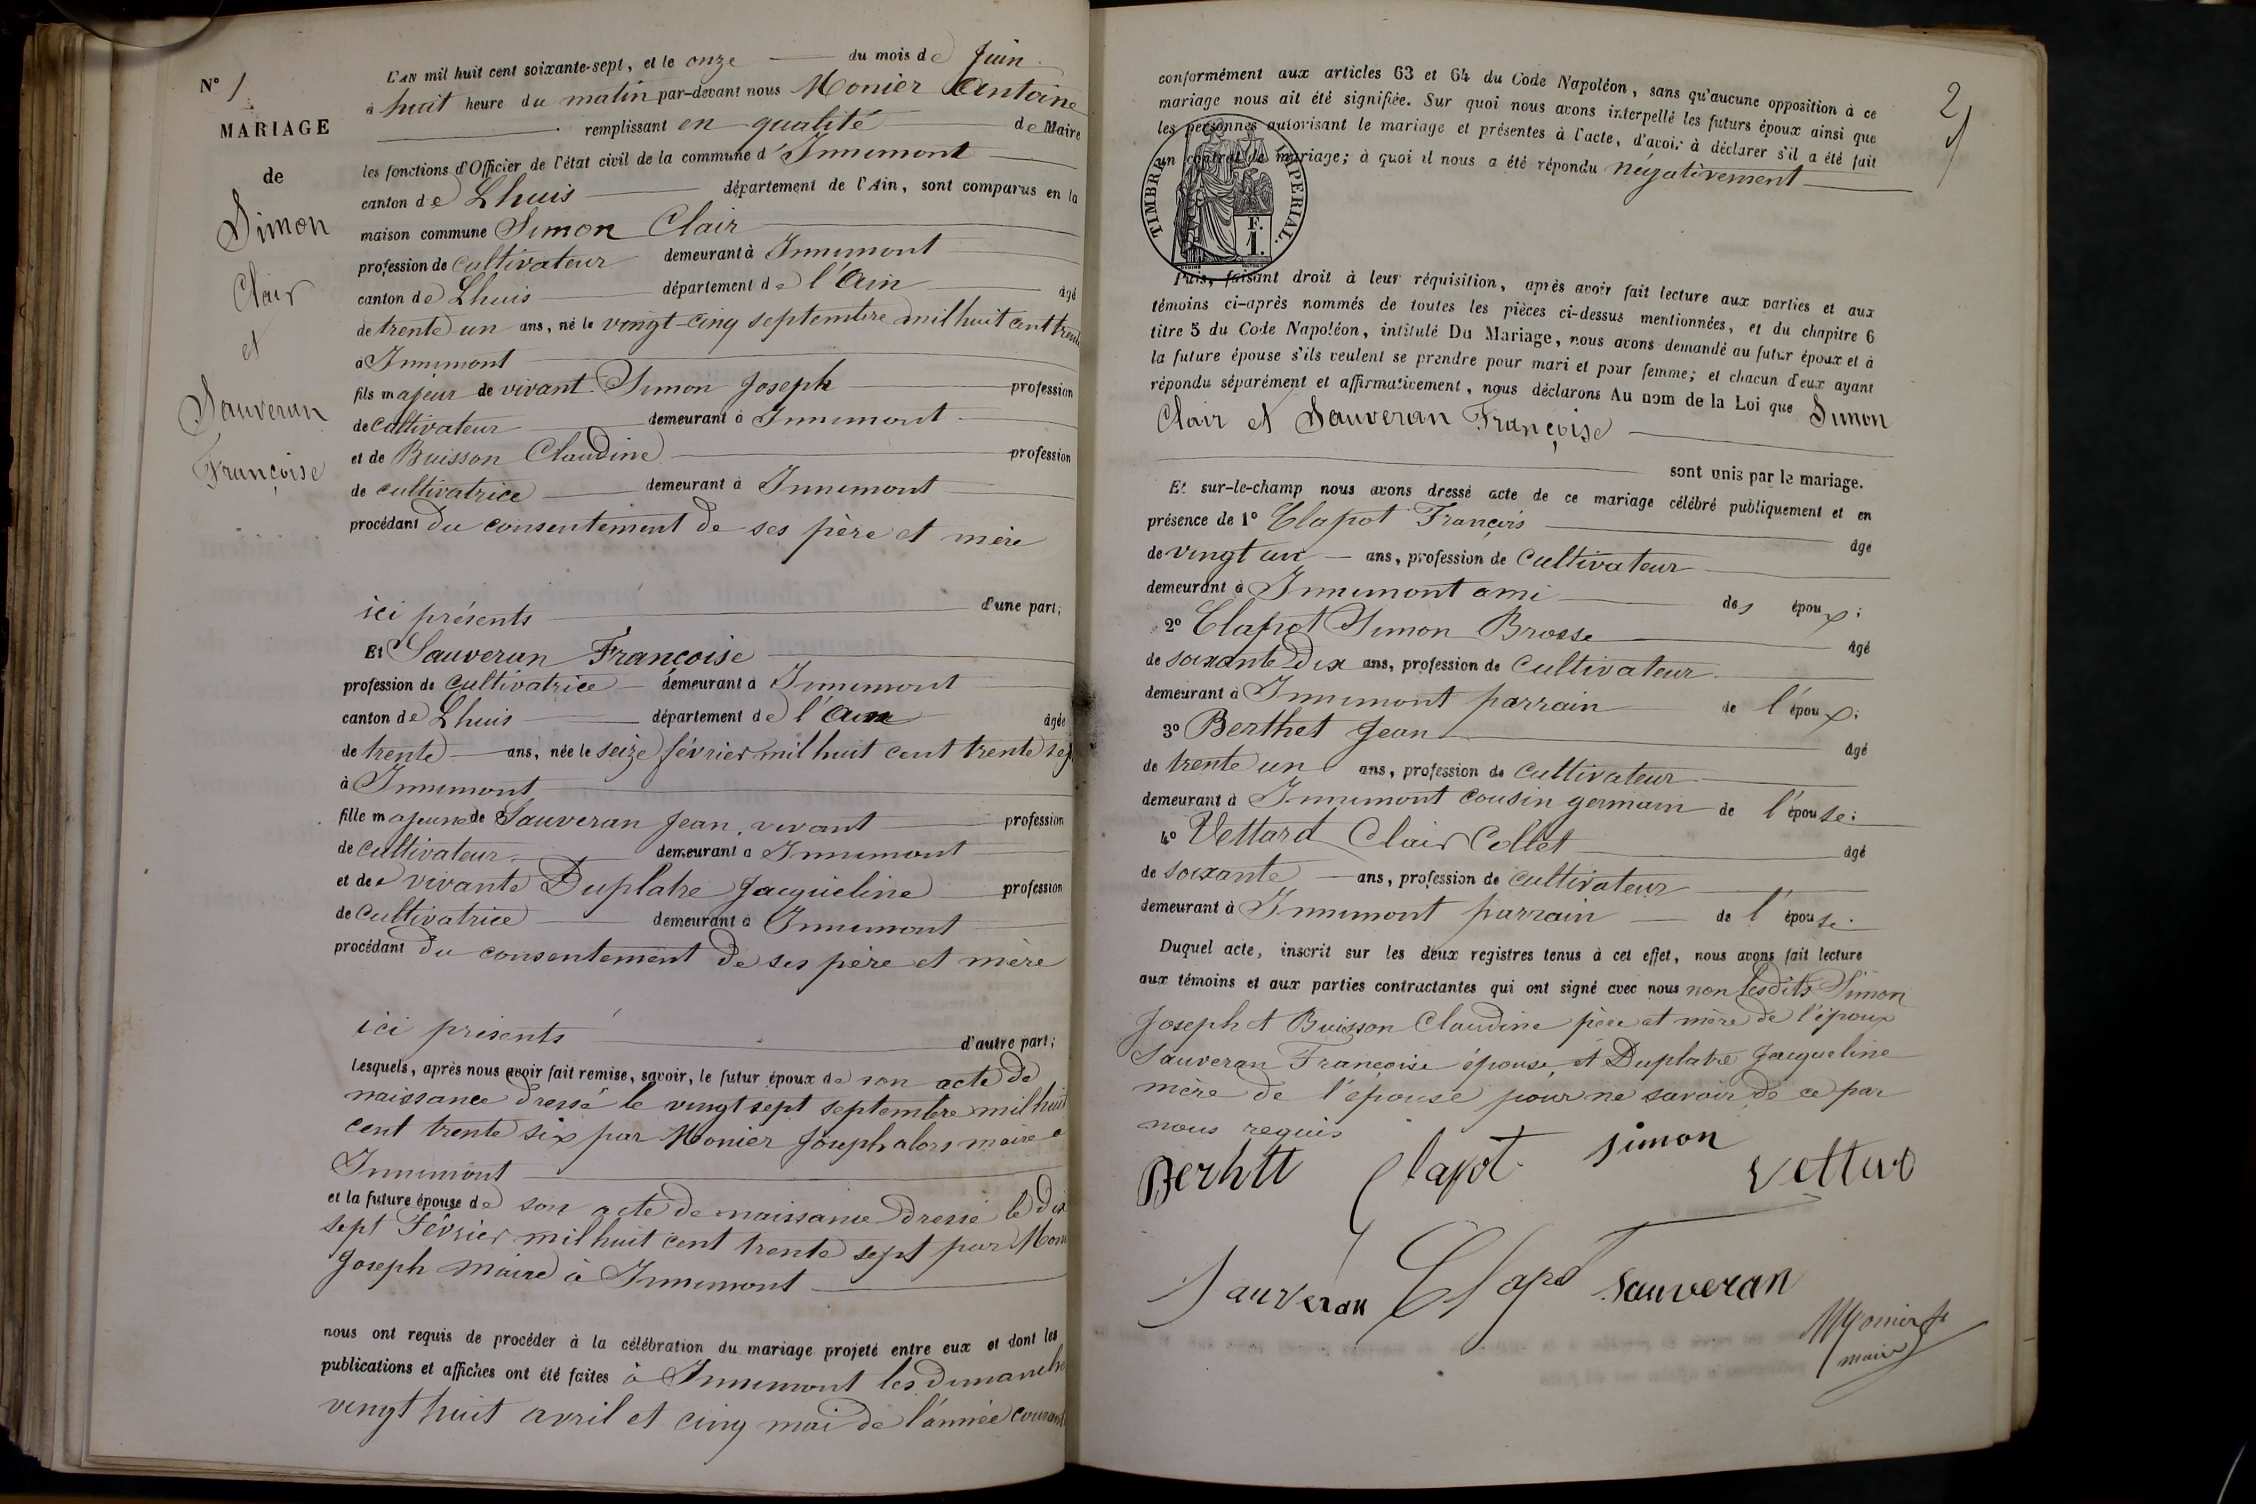 N° 1
MARIAGE
de
Simon
Clair
et
Sauveran
Françoise
L'AN mil huit cent soixante-sept, et le onze du mois de Juin
à huit heure du matin par-devant nous Monier Antoine
remplissant en qualité de Maire
les fonctions d'Officier de l'état civil de la commune d'Innimont
canton de Lhuis département de l'Ain, sont comparus en la
maison commune Simon Clair
profession de cultivateur demeurant à Innimont
canton de Lhuis département de l'Ain âgé
de trente un ans, né le vingt-cinq septembre mil huit cent trente
à Innimont
fils majeur de vivant Simon Joseph profession
de cultivateur demeurant à Innimont
et de Buisson Claudine profession
de cultivatrice demeurant à Innimont
procédant du consentement de ses père et mère
ici présents d'une part;
Et Sauveran Françoise
profession de cultivatrice demeurant à Innimont
canton de Lhuis département de l'Ain âgée
de trente ans, née le seize février mil huit cent trente sept
à Innimont
fille majeure de Sauveran Jean, vivant profession
de cultivateur demeurant à Innimont
et de vivante Duplatre Jacqueline profession
de cultivatrice demeurant à Innimont
procédant du consentement de ses père et mère
ici présents d'autre part;
Lesquels, après nous avoir fait remise, savoir, le futur époux de son acte de
naissance dressé le vingt sept septembre mil huit
cent trente six par Monier Joseph alors maire a
Innimont
et la future épouse de son acte de naissance dressé le dix
sept Février mil huit cent trente sept par Moni
Joseph Maire à Innimont
nous ont requis de procéder à la célébration du mariage projeté entre eux et dont les
publications et affiches ont été faites à Innimont les dimanche
vingt huit avril et cinq mai de l'année courante
2
conformément aux articles 63 et 64 du Code Napoléon, sans qu'aucune opposition à ce
mariage nous ait été signifiée. Sur quoi nous avons interpellé les futurs époux ainsi que
les personnes autorisant le mariage et présentes à l'acte, d'avoir à déclarer s'il a été fait
un contrat de mariage; à quoi il nous a été répondu négativement
TIMBRE IMPERIAL.
F.
1.
Puis, faisant droit à leur réquisition, après avoir fait lecture aux parties et aux
témoins ci-après nommés de toutes les pièces ci-dessus mentionnées, et du chapitre 6
titre 5 du Code Napoléon, intitulé Du Mariage, nous avons demandé au futur époux et à
la future épouse s'ils veulent se prendre pour mari et pour femme; et chacun d'eux ayant
répondu séparément et affirmativement, nous déclarons Au nom de la Loi que Simon
Clair et Sauveran Françoise
sont unis par le mariage.
Et sur-le-champ nous avons dressé acte de ce mariage célébré publiquement et en
présence de 1° Clapot François âgé
de vingt un ans, profession de cultivateur
demeurant à Innimont ami des époux;
2° Clapot Simon Brosse âgé
de soixante dix ans, profession de cultivateur
demeurant à Innimont parrain de l'époux;
3° Berthet Jean âgé
de trente un ans, profession de cultivateur
demeurant à Innimont cousin germain de l'épouse;
4° Vettard Clair Collet âgé
de soixante ans, profession de cultivateur
demeurant à Innimont parrain de l'épouse.
Duquel acte, inscrit sur les deux registres tenus à cet effet, nous avons fait lecture
aux témoins et aux parties contractantes qui ont signé avec nous non lesdits Simon
Joseph et Buisson Claudine père et mère de l'époux
Sauveran Françoise épouse, et Duplatre Jacqueline
mère de l'épouse pour ne savoir de ce par
nous requis
Berhtt Clapot simon Vettard
Sauveran Clapot Sauveran
Monier A
maire